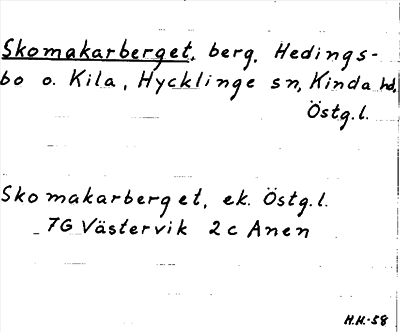 Skomakarberget, berg, Hedings-
bo o. Kila, Hycklinge sn, Kinda hd,
Östg.l.
Skomakarberget, ek. Östg.l.
7G Västervik 2c Anen
H.H.-58